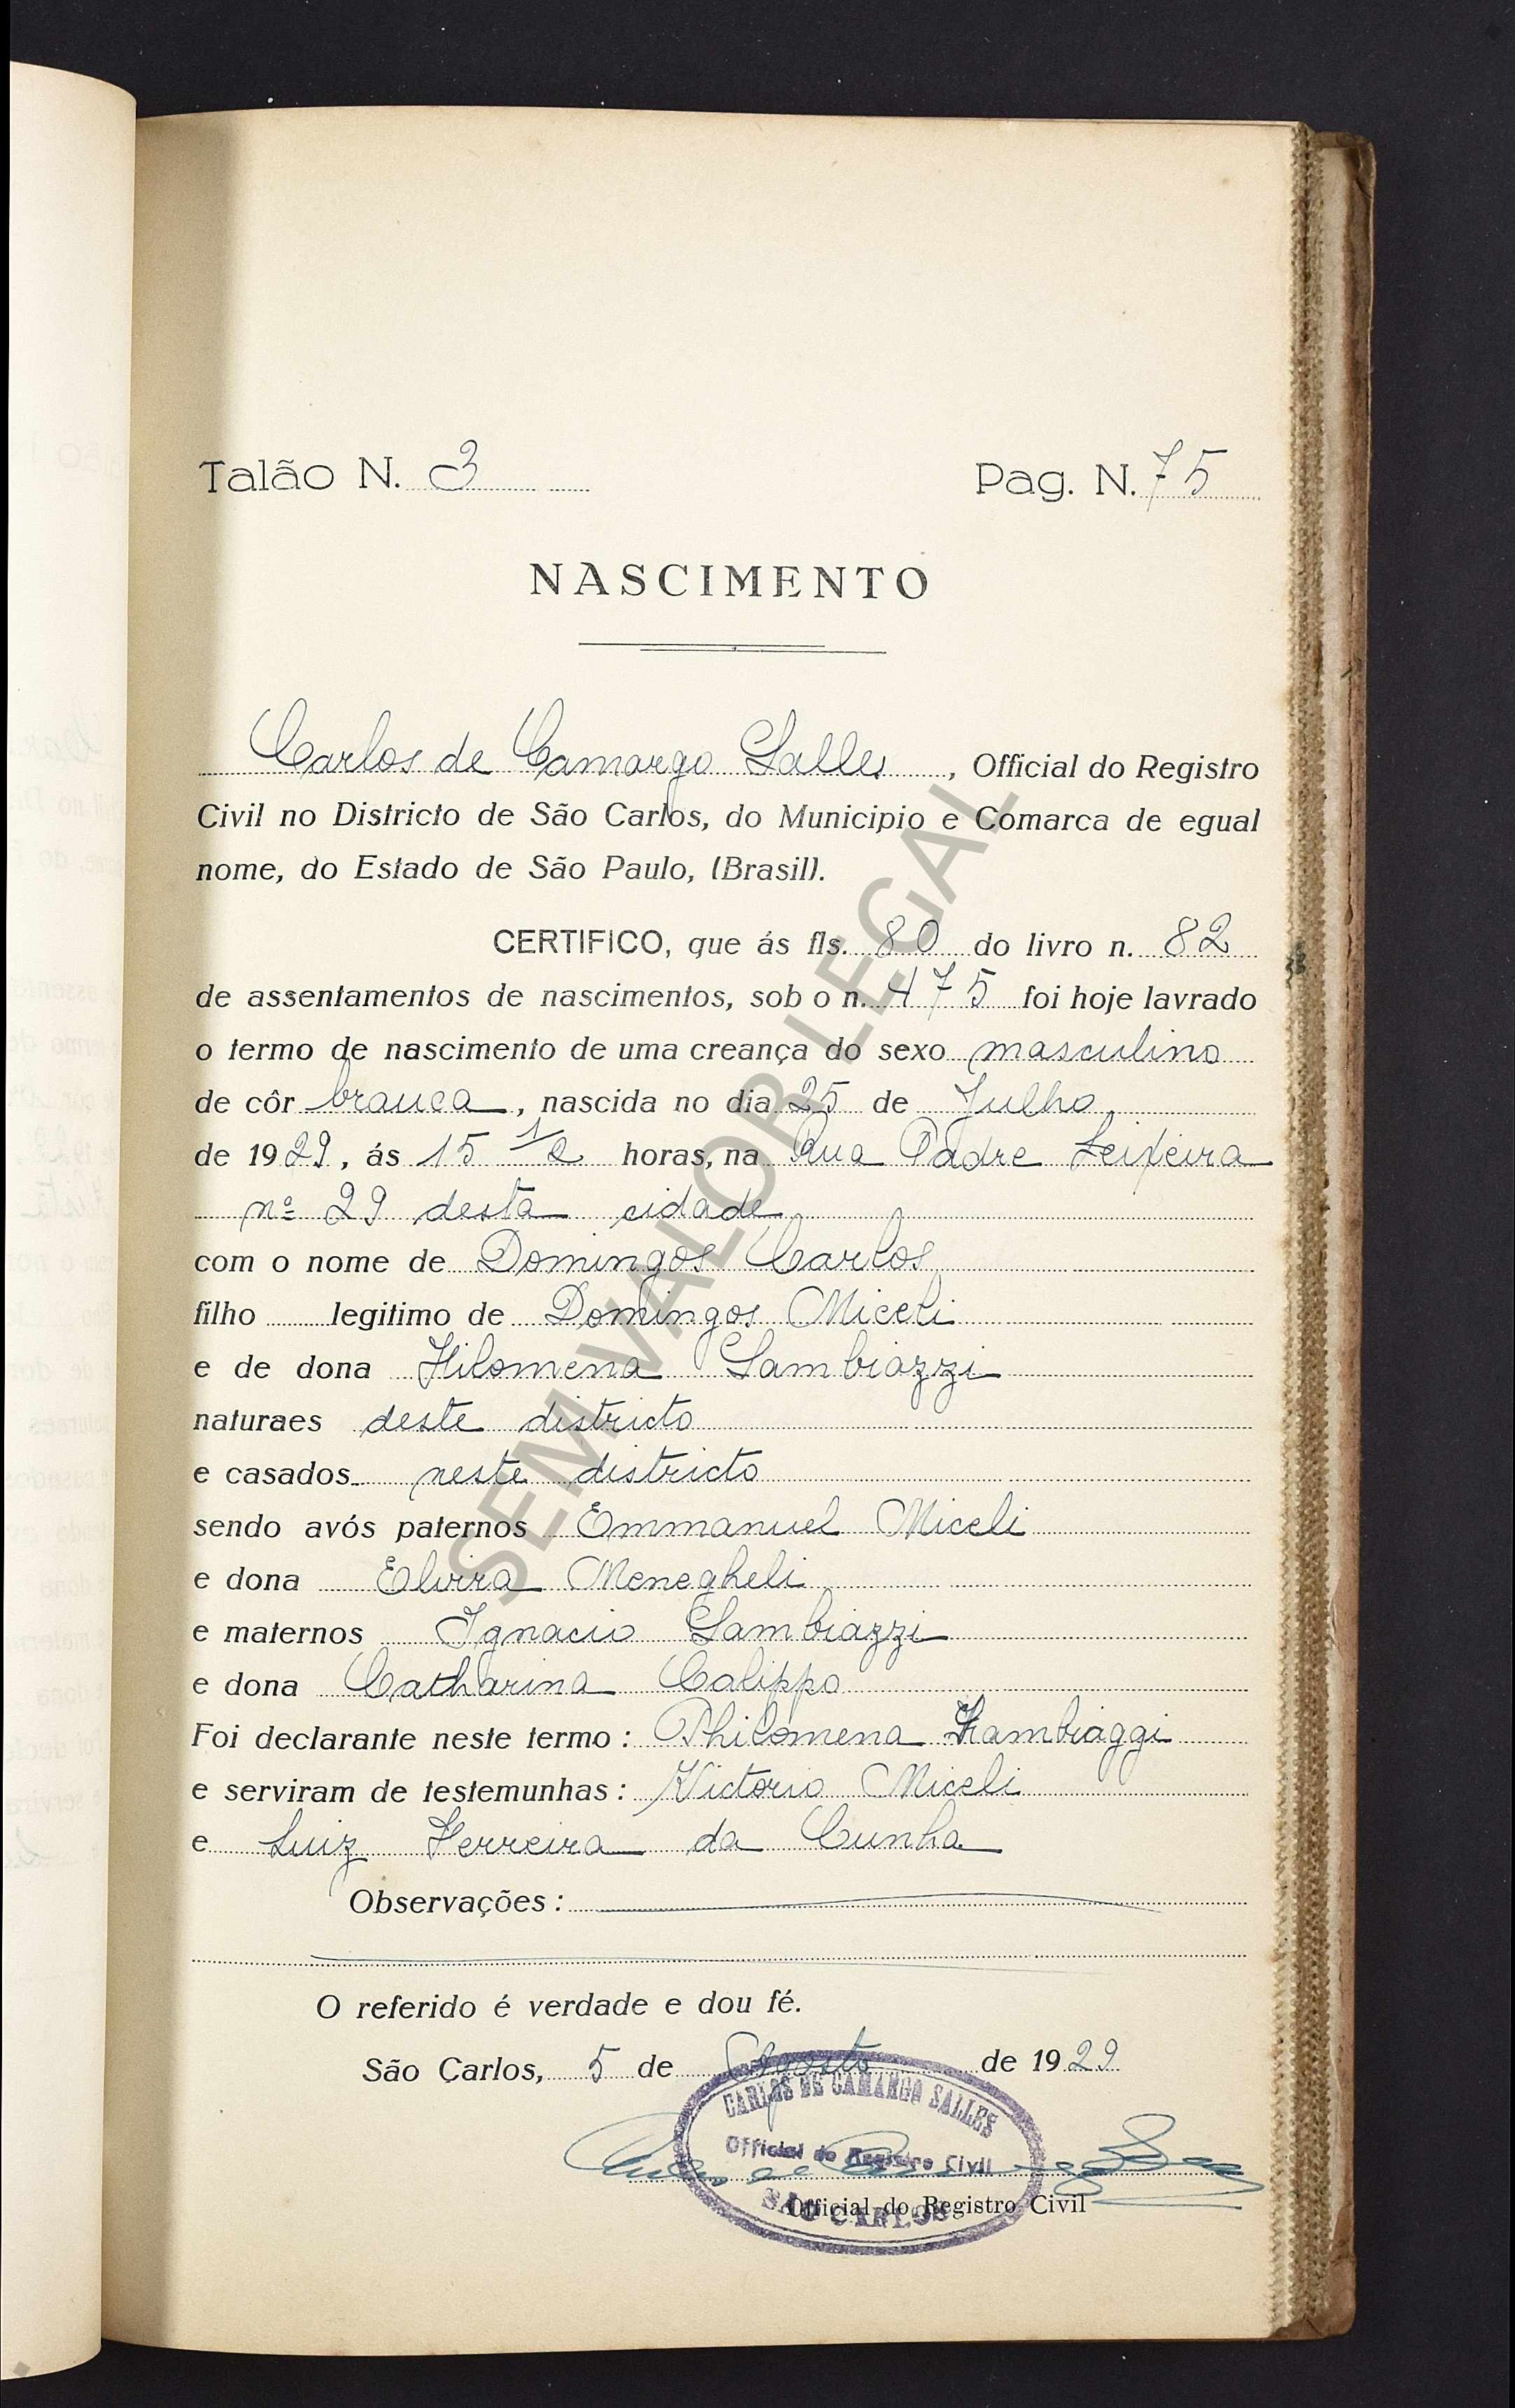 Talão N. 3 Pag. N. 75
NASCIMENTO
Carlos de Camargo Salles, Official do Registro
Civil no Districto de São Carlos, do Municipio e Comarca de egual
nome, do Estado de São Paulo, (Brasil).
CERTIFICO, que ás fls. 80 do livro n. 82
de assentamentos de nascimentos, sob o n. 475 foi hoje lavrado
o termo de nascimento de uma creança do sexo masculino
de côr branca, nascida no dia 25 de Julho
de 1929, ás 15 1/2 horas, na Rua Padre Teixeira
nº 29 desta cidade
com o nome de Domingos Carlos
filho legitimo de Domingos Miceli
e de dona Filomena Sambiazzi
naturaes deste districto
e casados neste districto
sendo avós paternos Emmanuel Miceli
e dona Elvira Menegheli
e maternos Ignacio Sambiazzi
e dona Catharina Calippo
Foi declarante neste termo: Philomena Zambiaggi
e serviram de testemunhas: Victorio Miceli
e Luiz Ferreira da Cunha
Observações:
O referido é verdade e dou fé.
São Carlos, 5 de Agosto de 1929
CARLOS DE CAMARGO SALLES
Official do Registro Civil
SÃO CARLOS
Official do Registro Civil
SEM VALOR LEGAL